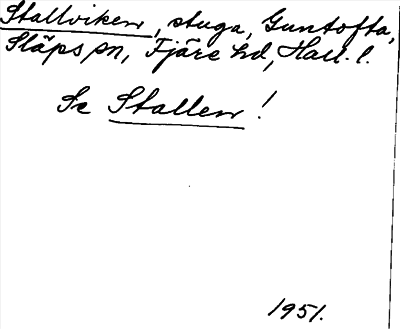 Stallviken, stuga, Guntofta,
Släps sn, Fjäre hd, Hall. l.
Se Stallen !
1951.